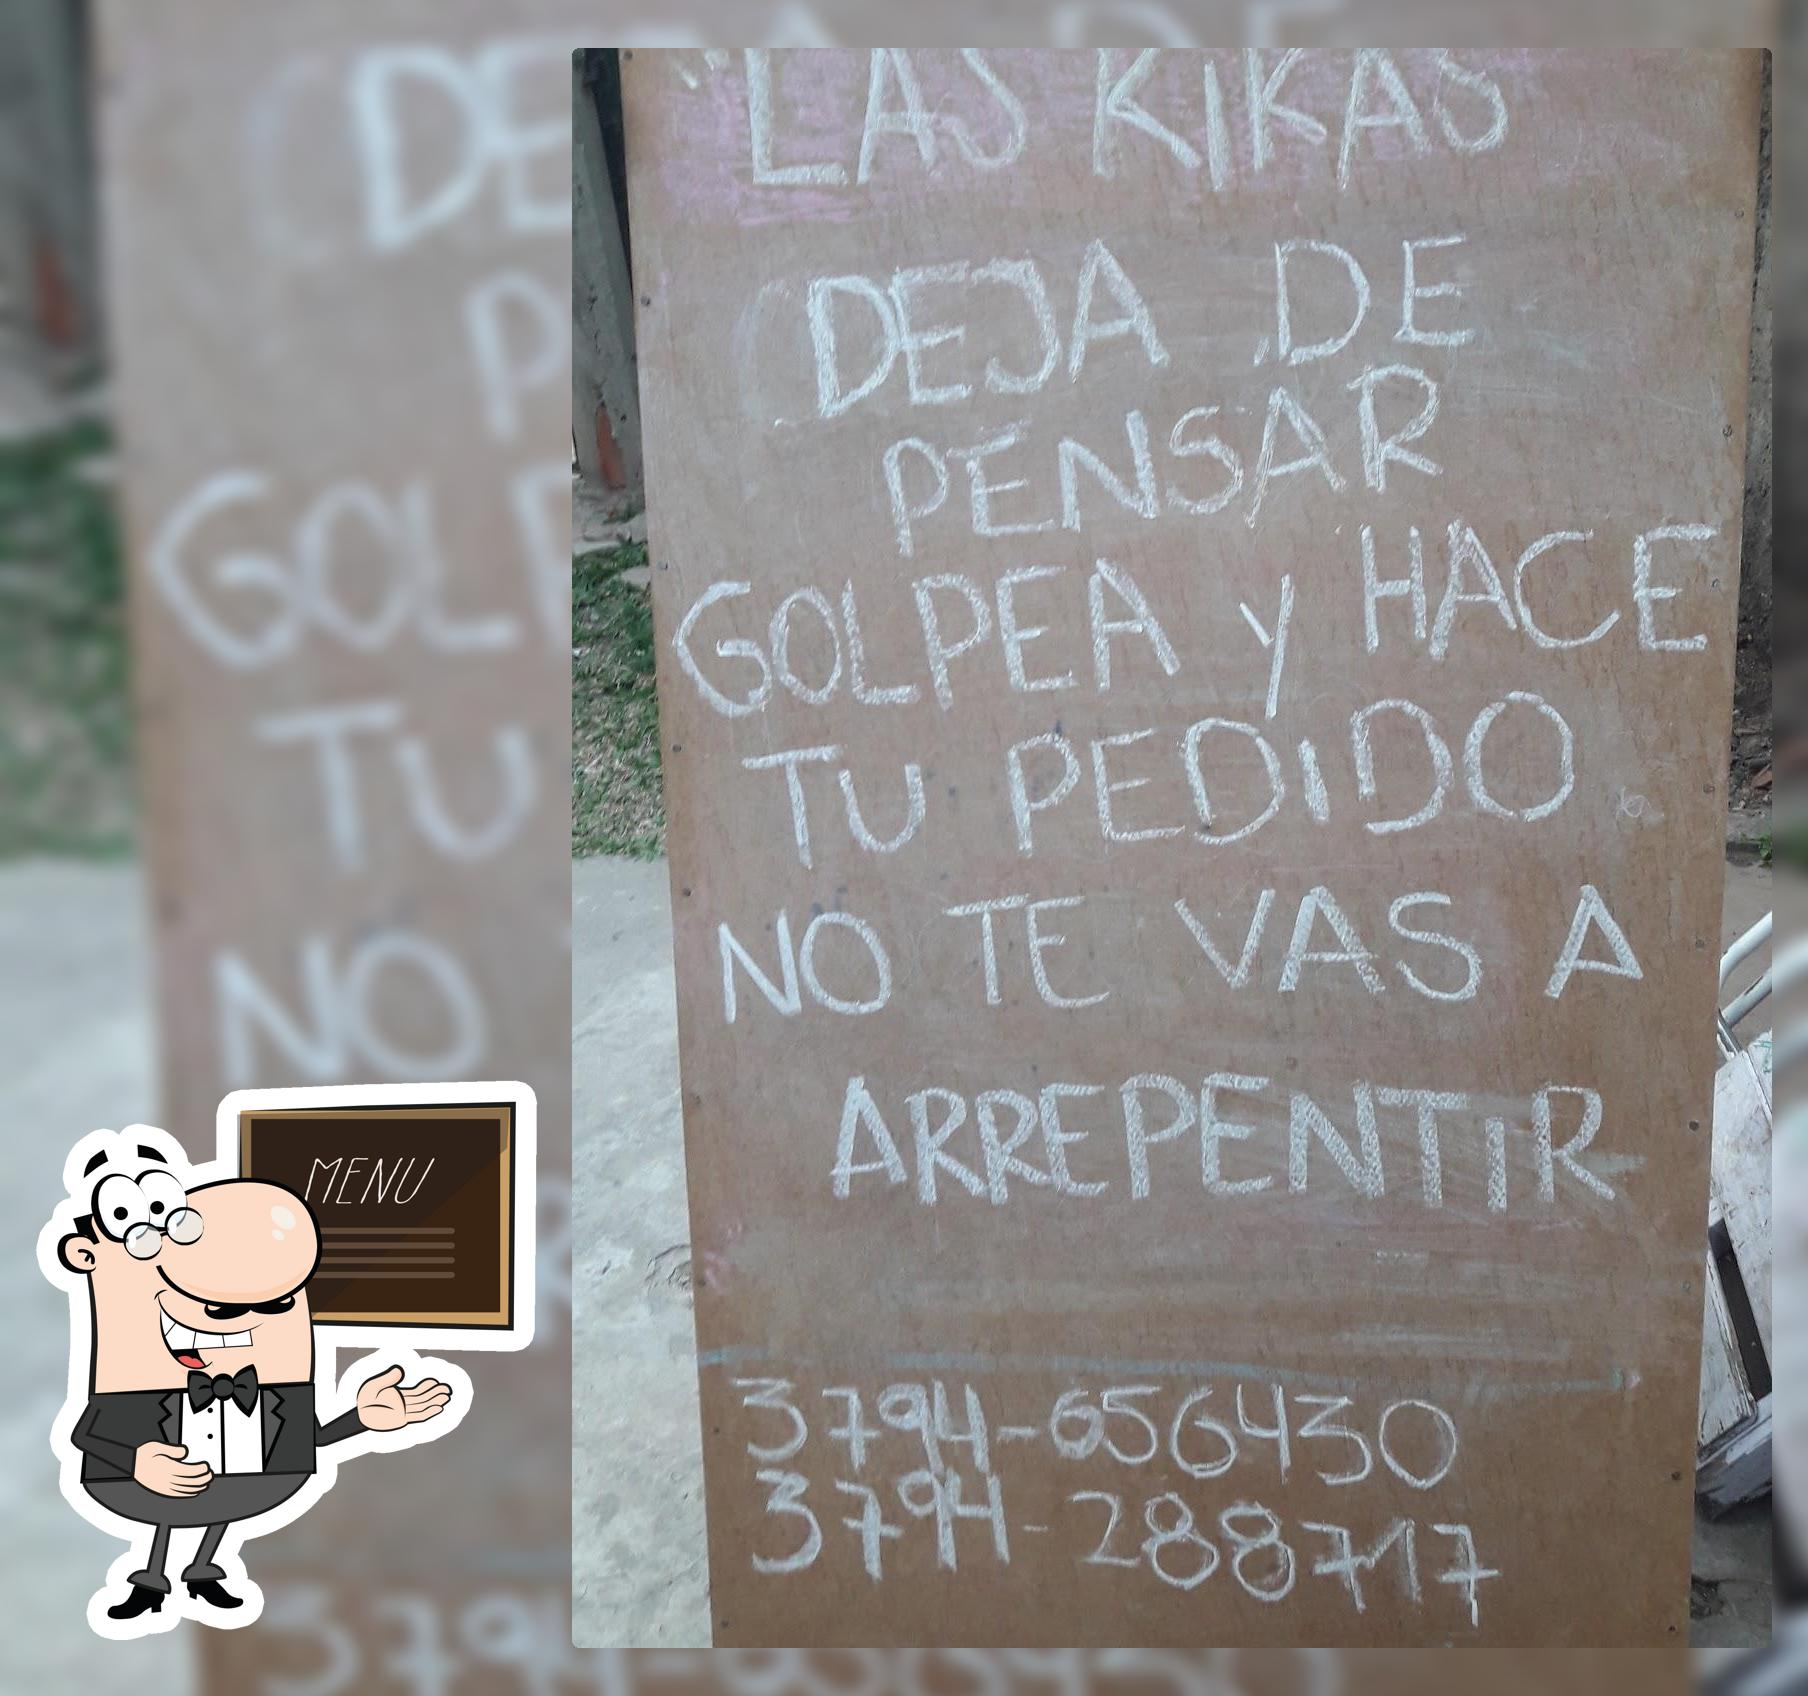 "LAS KIKAS
DEJA DE
PENSAR
GOLPEA Y HACE
TU PEDIDO
NO TE VAS A
ARREPENTIR
3794-656430
3794-288717
MENU